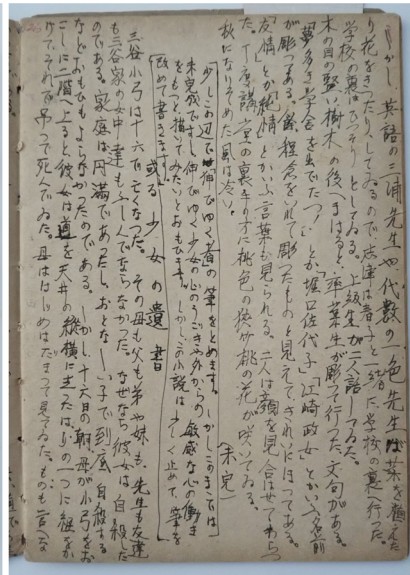 しかし英語の一浦先生や代数の一色先生は葉を顧みた
り花をきつたりしてゐるので、志津は春子と一緒に学校の裏へ行つた。
学校の裏はひつそりとしてゐる。上級生が二人話してゐた。
木の目の堅い樹木の後へまはると、卒業生が彫つて行つた文句がある。
「夢多き学舎を出でたつ」とか「堀口佐代子」「江崎政女」とかいふ名前
が彫つてある。余程念をいれて彫つたものと見えてきれいにほつてある。
「友情」とか「純情」とかいふ言葉も見られる。二人は顔を見合はせてわらつ
た。丁度講堂の裏手の方に桃色の夾竹桃の花が咲いてゐる。
秋になりそめた風は冷く。 (未完)
少しこの辺で伸びゆく者の筆をとめます。しかしこのまゝでは
未完成ですし伸びゆく少女の心のうごきや外からの敏感な心の働き
をもつと描いてみたいとおもひます。しかしこの小説は一先づ止めて筆を
改めて書きます。
或る少女の遺書
三谷小弓は十六で亡くなつた。その母も父も弟や妹も、先生も友達
も三谷家の女中達もふしんでならなかつた。なぜなら彼女は自殺した
のである。家庭は円満であつたし、おとなしい子で到底自殺する
などおもひもよらなかつたのである。しかし十六日の朝、母が小弓をお
こしに二階へ上ると彼女は道を天井の縦横に走つたはりの一つに紐をか
けてそれで吊つて死んでゐた。母ははじめはだまつて見てゐた。ものも言へな